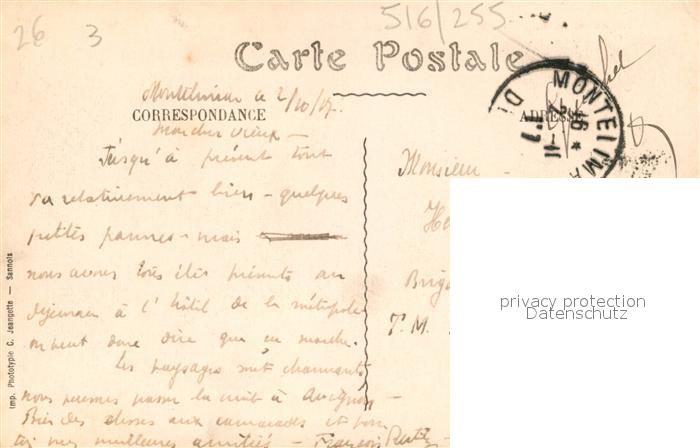 26 3 516/255
Carte Postale
CORRESPONDANCE
ADRESSE
MONTELIMA
Mon cher vieux -
Jusqu'à présent tout
va relativement bien - quelques
petites pannes - mais
nous avons tous été présents au
déjeuner à l'hôtel de la métropole
on peut donc dire que ça marche.
Les paysages sont charmants
nous pensons passer la nuit à Avignon -
Bien des choses aux camarades et pour
toi mes meilleures amitiés -
Monsieur
Brig
T. M.
Imp. Phototypie C. Jeangette — Sannois
privacy protection
Datenschutz